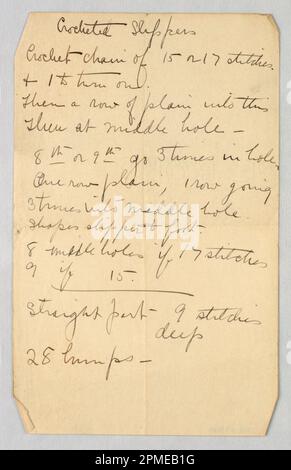 Crocheted Slippers
Crochet chain of 15 or 17 stitches
& 1 to turn on.
Then a row of plain into this
Then at middle hole —
8th or 9th go 3 times in hole
One row plain, 1 row going
3 times into middle hole.
Shapes slipper to foot
8 middle holes if 17 stitches
9 if 15.
Straight part 9 stitches
deep
28 bumps —
alamy
Image ID: 2PMEB1G
www.alamy.com